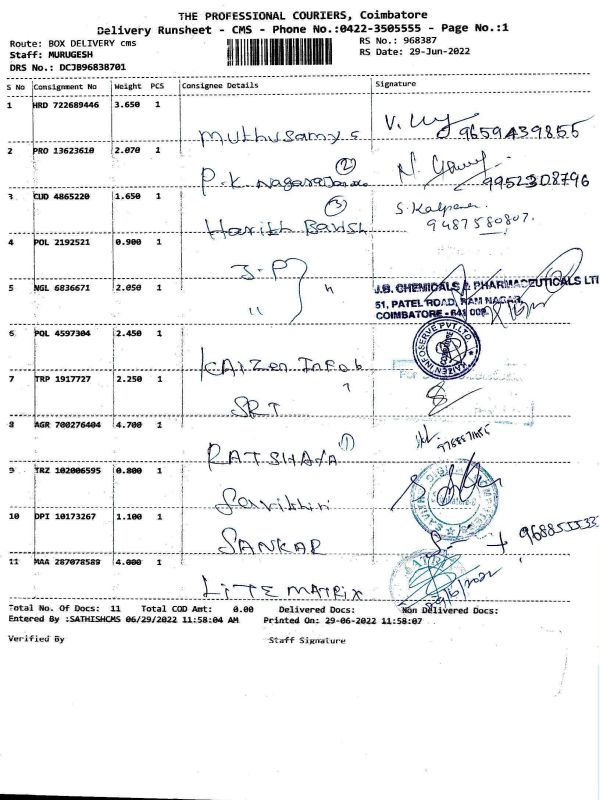 THE PROFESSIONAL COURIERS, Coimbatore
Delivery Runsheet - CMS - Phone No.:0422-3505555 - Page No.:1
Route: BOX DELIVERY cms RS No.: 968387
Staff: MURUGESH RS Date: 29-Jun-2022
DRS No.: DCJB96838701
S No Consignment No Weight PCS Consignee Details Signature
1 HRD 722689446 3.650 1
Muthusamy s V. 9659439855
2 PRO 13623610 2.070 1
2
P.K. Nagaraj N. 9952308796
3 CUD 4865220 1.650 1
3 S. Kalpana
Harith Bavish 9487580807.
4 POL 2192521 0.900 1
J-P
5 NGL 6836671 2.050 1 J.B. CHEMICALS & PHARMACEUTICALS LT
51, PATEL ROAD, RAM NAGAR,
" COIMBATORE - 641 009
6 POL 4597304 2.450 1 KAIZEN INFOSERVE PVT LTD
KAIZen Info
7 TRP 1917727 2.250 1
SRT
8 AGR 700276404 4.700 1
1
9 TRZ 102006595 0.800 1
10 DPI 10173267 1.100 1
SANKAR
11 MAA 287078589 4.000 1
LITE MATRIX 29/6/2022
Total No. Of Docs: 11 Total COD Amt: 0.00 Delivered Docs: Non Delivered Docs:
Entered By :SATHISHCMS 06/29/2022 11:58:04 AM Printed On: 29-06-2022 11:58:07
Verified By Staff Signature